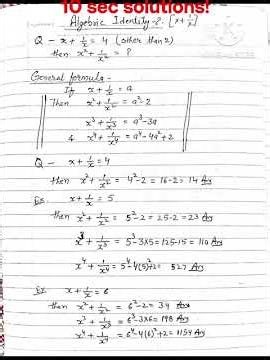 10 sec solutions!
Algebraic Identity :- [x + 1/x]
Q - x + 1/x = 4 (other than 2)
then x² + 1/x² = ?
General formula -
If x + 1/x = a
Then x² + 1/x² = a² - 2
x³ + 1/x³ = a³ - 3a
& x⁴ + 1/x⁴ = a⁴ - 4a² + 2
Q - x + 1/x = 4
then x² + 1/x² = 4² - 2 = 16 - 2 = 14 Ans
Ex x + 1/x = 5
then x² + 1/x² = 5² - 2 = 25 - 2 = 23 Ans
x³ + 1/x³ = 5³ - 3×5 = 125 - 15 = 110 Ans
x⁴ + 1/x⁴ = 5⁴ - 4(5)² + 2 = 527 Ans
Ex x + 1/x = 6
then x² + 1/x² = 6² - 2 = 34 Ans
x³ + 1/x³ = 6³ - 3×6 = 198 Ans
x⁴ + 1/x⁴ = 6⁴ - 4(6)² + 2 = 1154 Ans